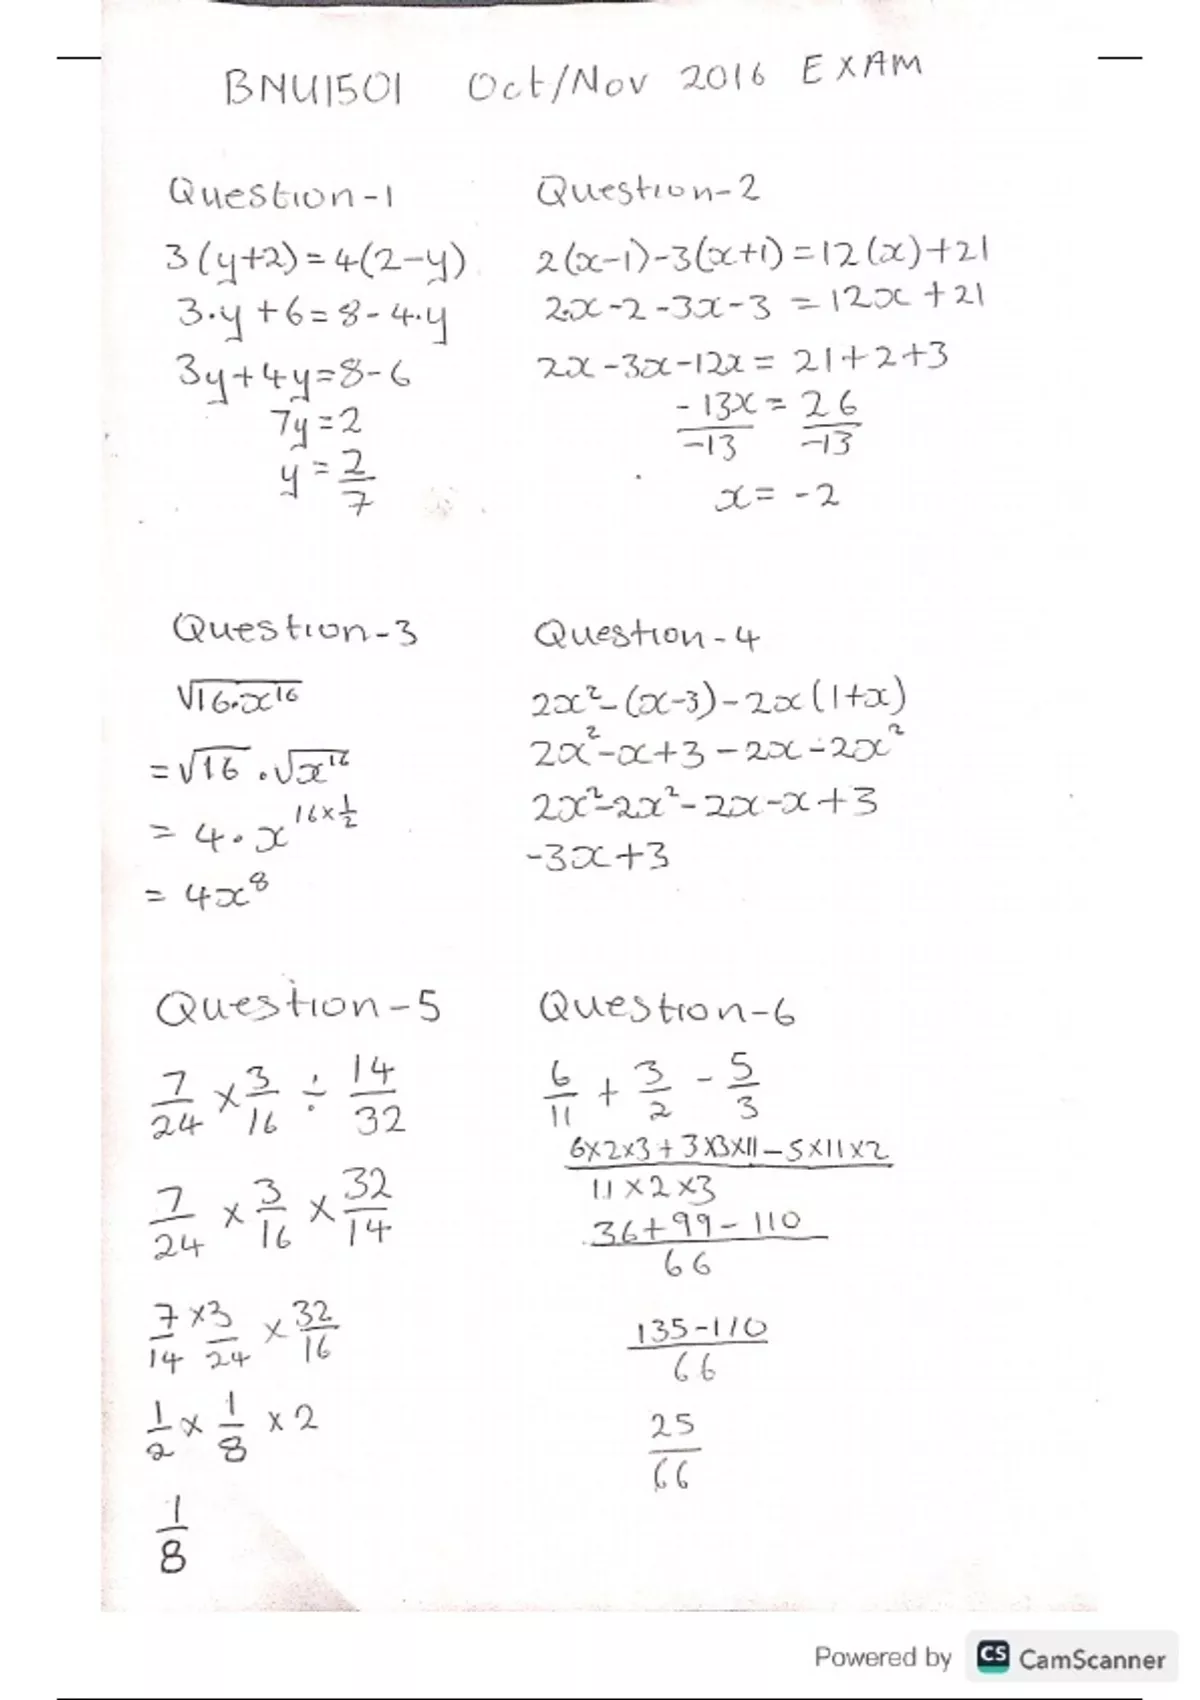 BNU1501 Oct/Nov 2016 EXAM
Question-1
3(y+2)=4(2-y)
3·y+6=8-4·y
3y+4y=8-6
7y=2
y=2/7
Question-2
2(x-1)-3(x+1)=12(x)+21
2x-2-3x-3=12x+21
2x-3x-12x=21+2+3
-13x/-13=26/-13
x=-2
Question-3
√16·x¹⁶
=√16·√x¹⁶
=4·x^16×1/2
=4x⁸
Question-4
2x²-(x-3)-2x(1+x)
2x²-x+3-2x-2x²
2x²-2x²-2x-x+3
-3x+3
Question-5
7/24×3/16÷14/32
7/24×3/16×32/14
7/14×3/24×32/16
1/2×1/8×2
1/8
Question-6
6/11+3/2-5/3
6×2×3+3×3×11-5×11×2
11×2×3
36+99-110
66
135-110
66
25
66
Powered by CS CamScanner